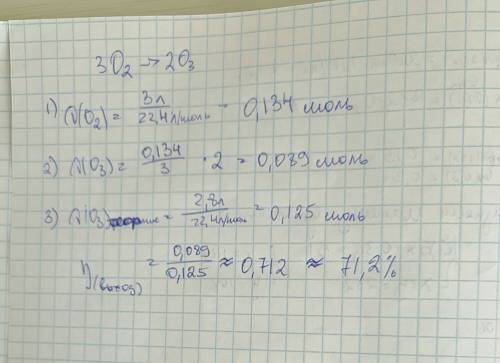 3O₂ → 2O₃
1) ν(O₂) = 3л / 22,4 л/моль = 0,134 моль
2) ν(O₃) = 0,134 / 3 · 2 = 0,089 моль
3) ν(O₃) = 2,8л / 22,4 л/моль = 0,125 моль
η(выход) = 0,089 / 0,125 ≈ 0,712 ≈ 71,2%